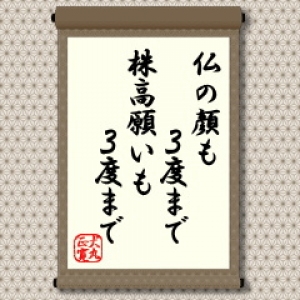 仏の顔も
3度まで
株高願いも
3度まで